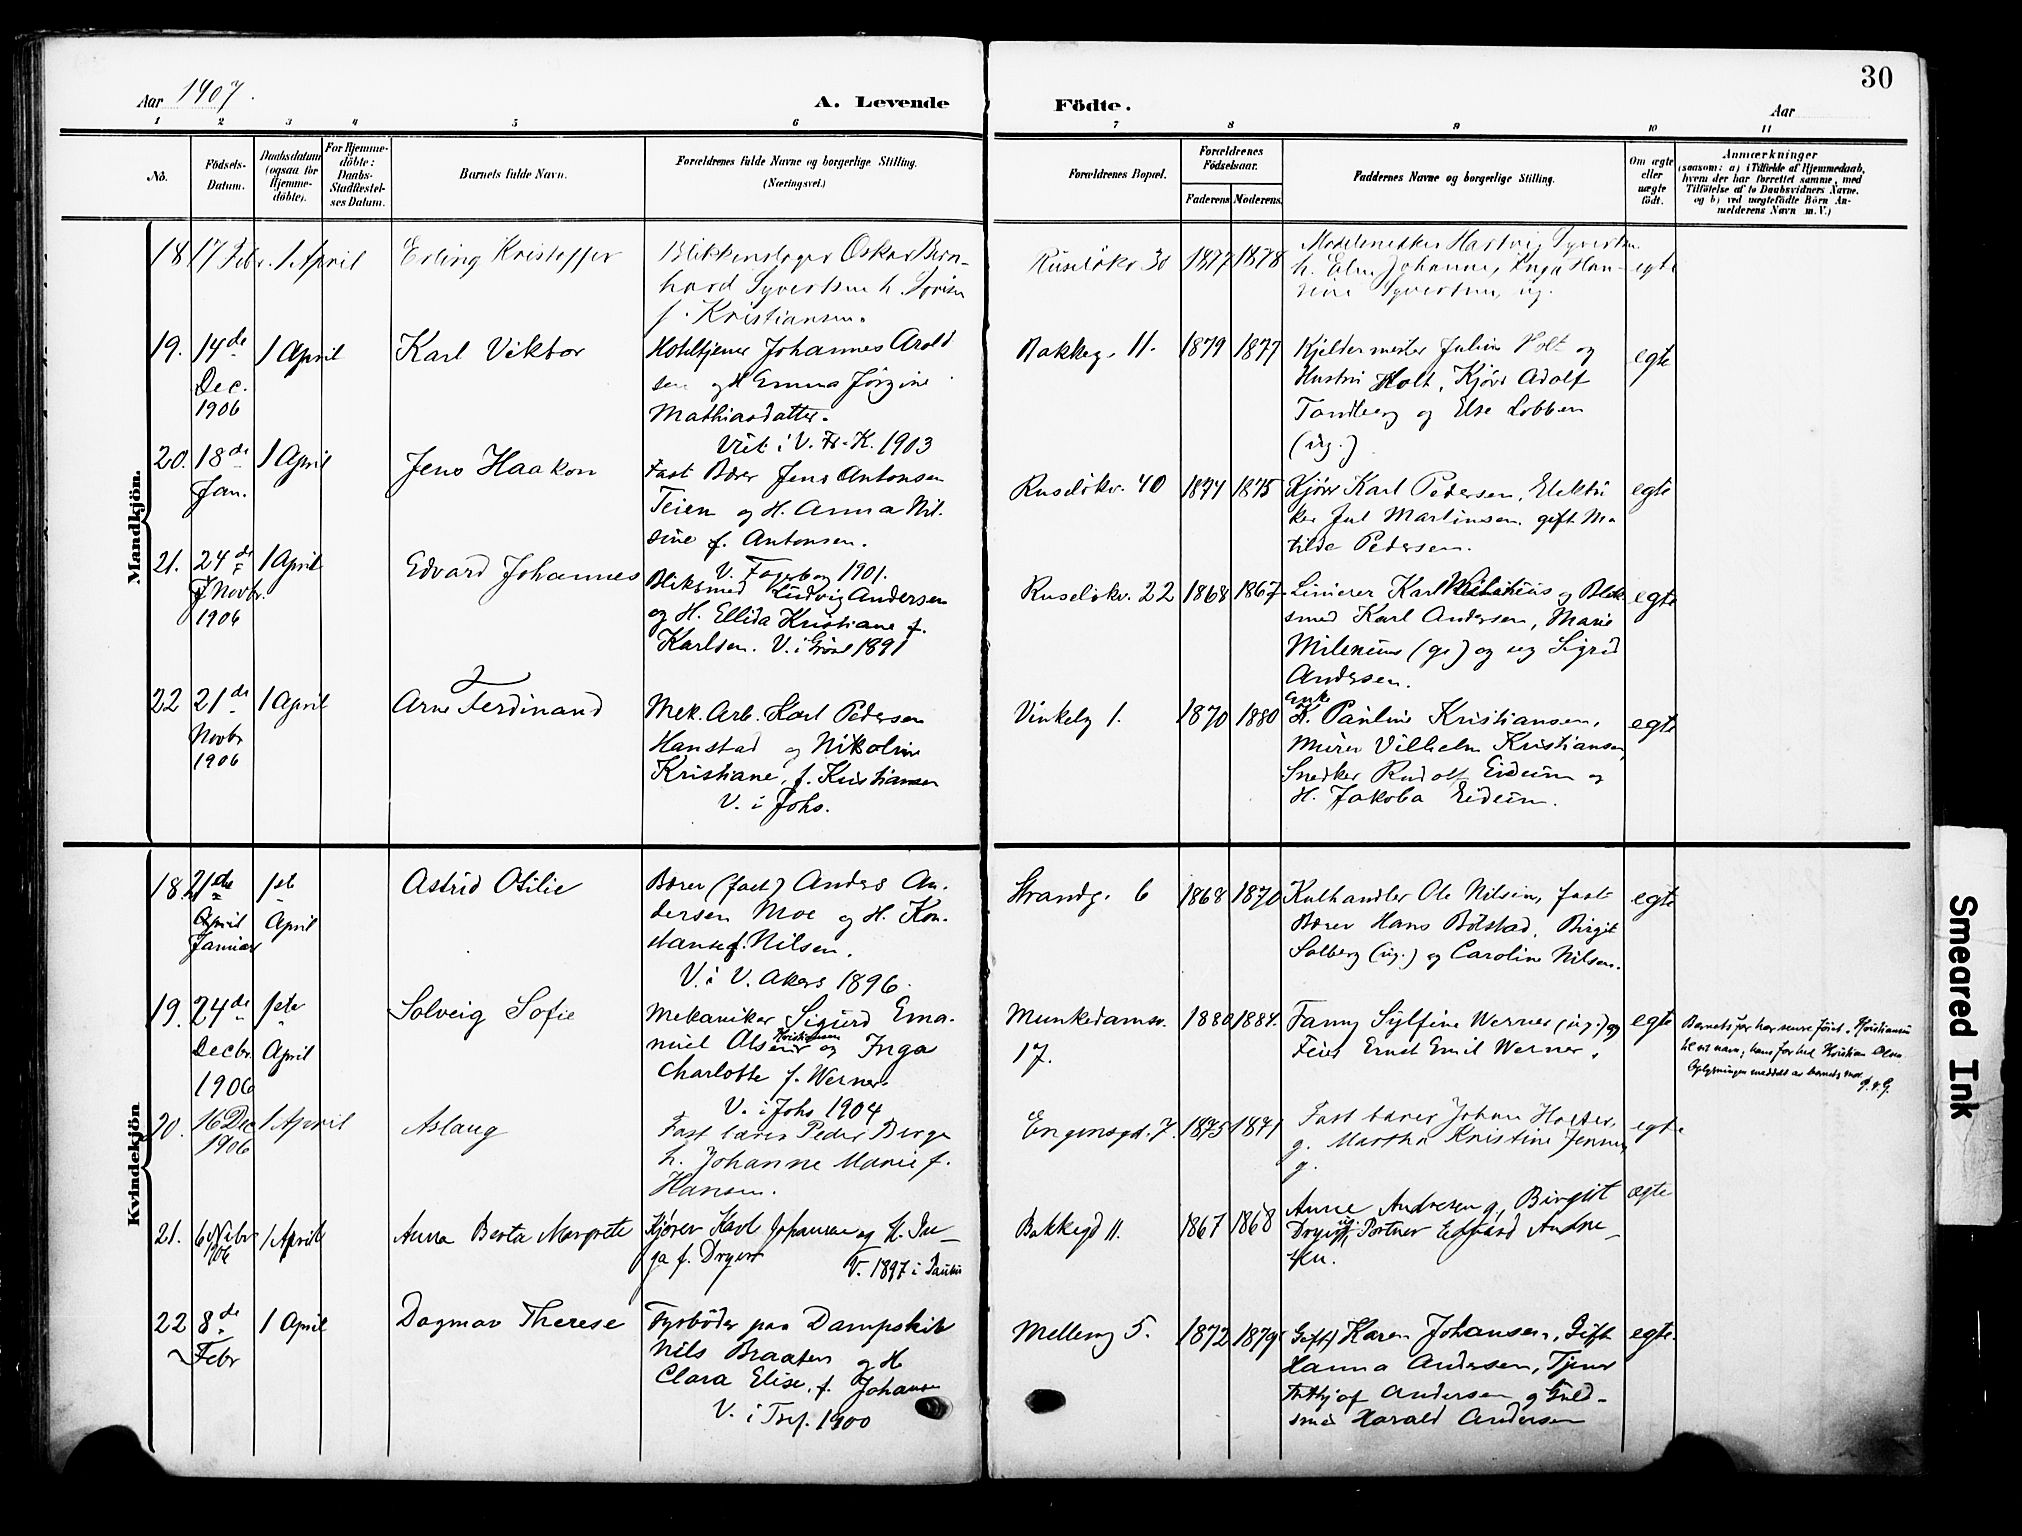 30
Aar 1907.
A. Levende Födte.
Aar
1 2 3 4 5 6 7 8 9 10 11
No.
Födsels-
Datum.
Daabsdatum
(ogsaa for
Hjemme-
döbte).
For Hjemme-
döbte:
Daabs-
Stadfæstel-
ses Datum.
Barnets fulde Navn.
Forældrenes fulde Navne og borgerlige Stilling.
(Næringsvei.)
Forældrenes Bopæl.
Forældrenes
Födselsaar.
Faderens Moderens
Faddernes Navne og borgerlige Stilling.
Om ægte
eller
uægte
födt.
Anmærkninger
(saasom: a) i Tilfælde af Hjemmedaab,
hvem der har forrettet samme, med
Tilföielse af to Daabsvidners Navne,
og b) ved uægtefödte Börn An-
melderens Navn m. V.)
Mandkjön.
18 17 Febr. 1 April
Erling Kristoffer
Blikkenslager Oskar Bern-
hard Syvertsen h.
f. Kristiansen.
Ruseløkv 30
1877 1878
Hartvig Syvertsen
h. Johanne, Inga Han-
sine Syvertsen, ug.
egte
19. 14de
Dec.
1906
1 April
Karl Viktor
Hoteltjener Johannes Arold
sen og H Emma Jørgine
Mathiasdatter.
Viet i V. Fr. K. 1903
Bakkeg. 11.
1879 1877
Kjeldermester Julius Holt og
Hustru Holt, Kjører Adolf
Tandberg og Else Lobben
(ug.)
egte
20. 18de
Jan.
1 April
Jens Haakon
Fast Bærer Jens Antonsen
Teien og H. Anna Nil-
sine f. Antonsen.
V. Fagerborg 1901.
Ruseløkv. 40
1874 1875
Kjører Karl Pedersen, Elektri
ker Jul Martinsen, gift Ma
tilde Pedersen.
egte
21. 24de
Novbr.
1906
1 April
Edvard Johannes
Bliksmed Ludvig Andersen
og H. Ellida Kristiane f.
Karlsen. V. i Grønl 1891
Ruseløkv. 22
1868 1867
Linierer Karl og Blik
smed Karl Andersen, Marie
Milenius (g.) og ug Sigrid
Andersen.
egte
22 21de
Novbr
1906
1 April
Arne Ferdinand
Mek. Arb. Karl Pedersen
Hanstad og Nikoline
Kristiane, f. Kristiansen
V. i Johs.
Vinkelg 1.
1870 1880
Enke
H. Pauline Kristiansen,
Murer Vilhelm Kristiansen,
Snedker Rudolf Eideim og
H. Jakoba Eideim.
egte
Kvindekjön
18. 21de
April
Januar
1ste
April
Astrid Otilie
Bærer (fast) Anders An-
dersen Moe og H. Kon-
stanse f. Nilsen.
V. i V. Akers 1896.
Strandg. 6
1868 1870
Kulhandler Ole Nilsen, fast
Bærer Hans Bølstad, Birgit
Solberg (ug.) og Caroline Nilsen.
egte
19. 24de
Decbr.
1906
1ste
April
Solveig Sofie
Mekaniker Sigurd Ema-
nuel Olsen Kristiansen og Inga
Charlotte f. Werner.
V. i Johs 1904
Munkedamsv.
17.
1880 1884.
Fanny Sylfine Werner (ug.) og
Feier Ernst Emil Werner.
egte
Barnets far har senere ført Kristiansen
til sit navn; hans far hed Kristian Olsen
Oplysningen meddelt av barnets mor.
20. 16 Dec
1906
1 April
Aslaug
Fast bærer Peder Berge
h. Johanne Marie f.
Hansen.
Engensgd. 7.
1875 1871
Fast bærer Johan
g. Martha Kristine
g.
egte
21. 6 Novbr
1906
1 April
Anna Berta Margrete
Kjører Karl Johansen og H. In-
ga f. Dryer
V. 1897 i Paulus
Bakkegd 11.
1867 1868
Anne Andresen g, Birgit
Dryer ug. Portner Edvard Andre-
sen.
ægte
22 8de
Febr
1 April
Dagmar Therese
Fyrbøder paa Dampskib
Nils Braaten og H
Clara Elise, f. Johansen
V. i Tref. 1900
Mellemg 5.
1872 1879
(Gift) Karen Johansen, Gift
Hanna Andersen, Tjener
Frithjof Andersen og Guld-
smed Harald Andersen
egte.
Smeared Ink